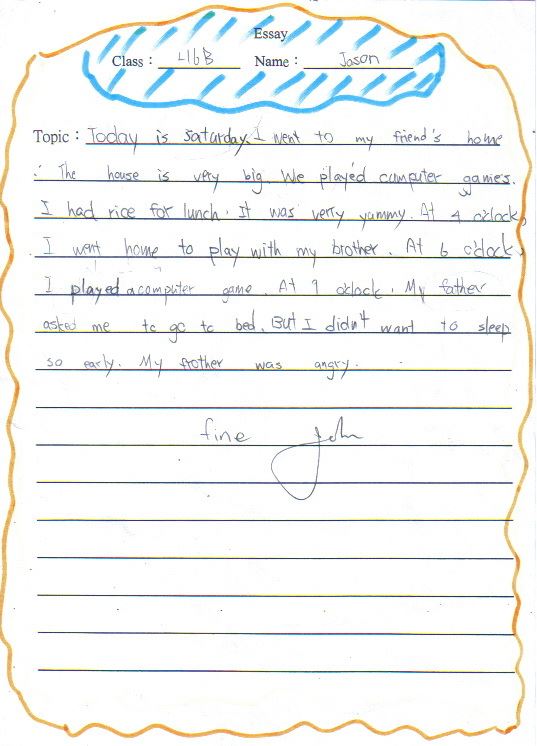 Essay
Class : 416B Name : Jason
Topic : Today is Saturday. I went to my friend's home
. The house is very big. We played cumputer games.
I had rice for lunch. It was verty yummy. At 4 o'clock,
I went home to play with my brother. At 6 o'clock,
I played a computer game. At 9 o'clock. My father
asked me to go to bed. But I didn't want to sleep
so early. My frother was angry.
fine John